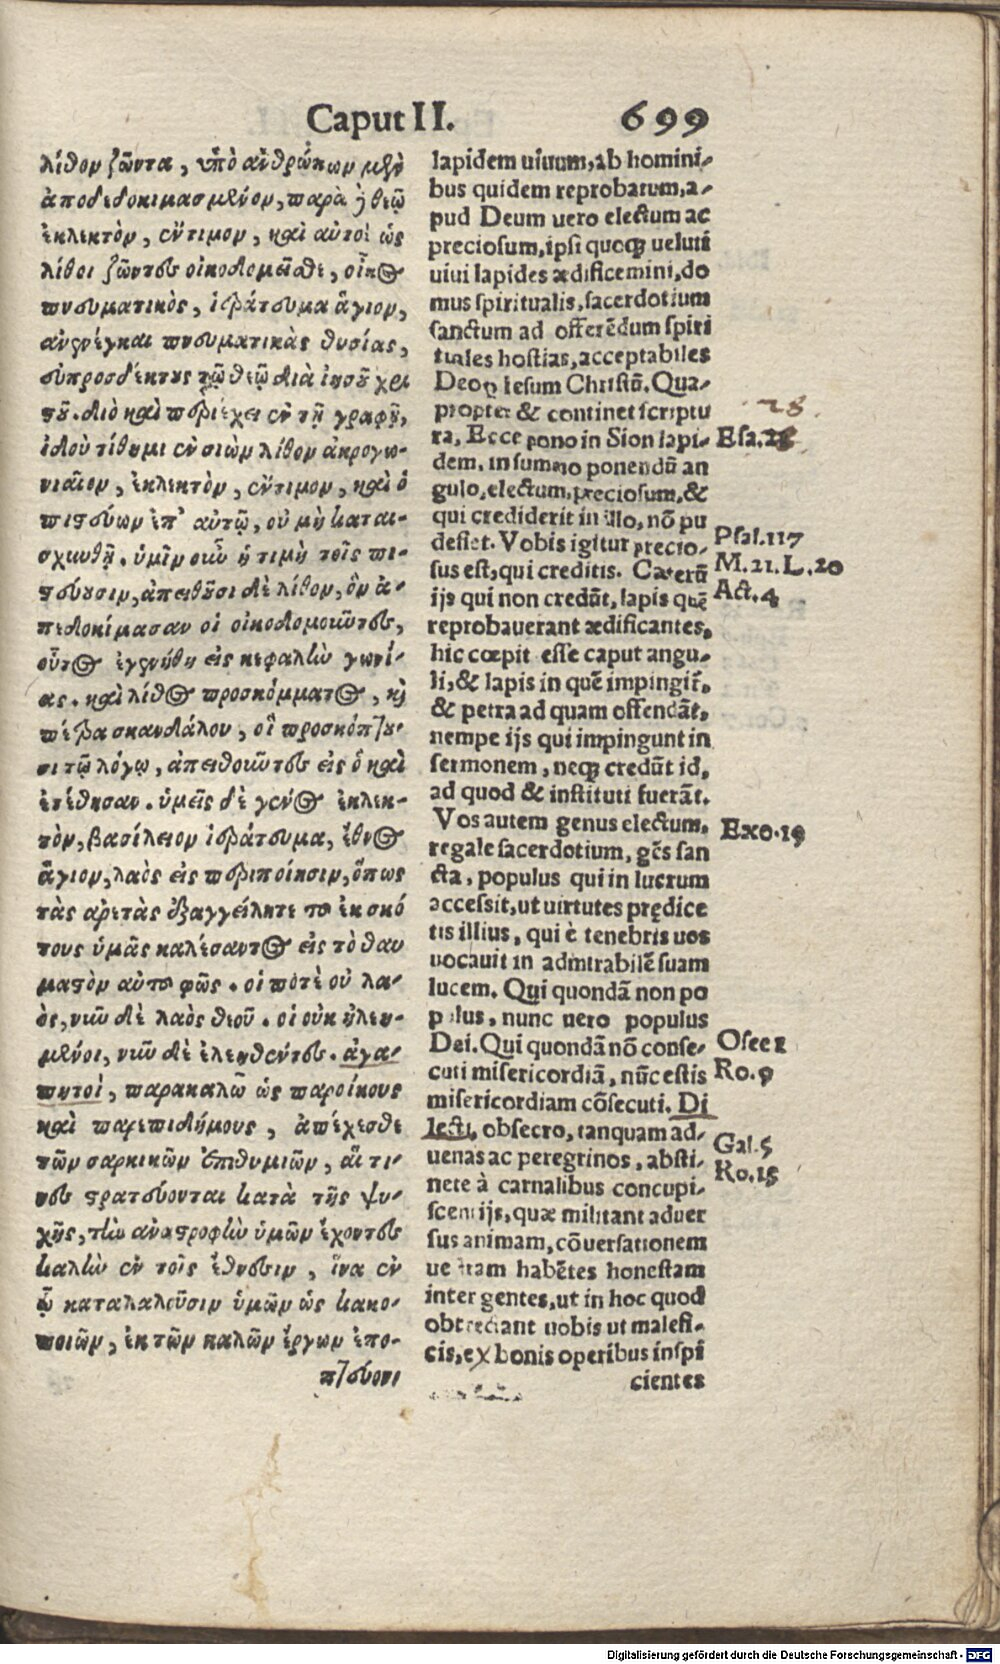 Caput II. 699
λίθον ζῶντα, ὑπὸ ἀνθρώπων μὲν
ἀποδεδοκιμασμένον, παρὰ ἢ θεῷ
ἐκλεκτὸν, ἔντιμον, καὶ αὐτοὶ ὡς
λίθοι ζῶντες οἰκοδομεῖσθε, οἶκος
πνευματικὸς, ἱεράτευμα ἅγιον,
ἀνενέγκαι πνευματικὰς θυσίας,
εὐπροσδέκτους τῷ θεῷ διὰ ἰησοῦ χρι
στοῦ. διὸ καὶ περιέχει ἐν τῇ γραφῇ,
ἰδοὺ τίθημι ἐν σιὼν λίθον ἀκρογω-
νιαῖον, ἐκλεκτὸν, ἔντιμον, καὶ ὁ
πιστεύων ἐπ' αὐτῷ, οὐ μὴ καται-
σχυνθῇ. ὑμῖν οὖν ἡ τιμὴ τοῖς πι-
στεύουσιν, ἀπειθοῦσι δὲ λίθον, ὃν ἀ-
πεδοκίμασαν οἱ οἰκοδομοῦντες,
οὗτος ἐγενήθη εἰς κεφαλὴν γωνί-
ας. καὶ λίθος προσκόμματος, καὶ
πέτρα σκανδάλου, οἳ προσκόπτου-
σι τῷ λόγῳ, ἀπειθοῦντες εἰς ὃ καὶ
ἐτέθησαν. ὑμεῖς δὲ γένος ἐκλεκ-
τὸν, βασίλειον ἱεράτευμα, ἔθνος
ἅγιον, λαὸς εἰς περιποίησιν, ὅπως
τὰς ἀρετὰς ἐξαγγείλητε τοῦ ἐκ σκό
τους ὑμᾶς καλέσαντος εἰς τὸ θαυ
μαστὸν αὐτοῦ φῶς. οἱ ποτὲ οὐ λα-
ὸς, νῦν δὲ λαὸς θεοῦ. οἱ οὐκ ἠλεη-
μένοι, νῦν δὲ ἐλεηθέντες. ἀγα-
πητοὶ, παρακαλῶ ὡς παροίκους
καὶ παρεπιδήμους, ἀπέχεσθε
τῶν σαρκικῶν ἐπιθυμιῶν, αἵ τι-
νες στρατεύονται κατὰ τῆς ψυ-
χῆς, τὴν ἀναστροφὴν ὑμῶν ἔχοντες
καλὴν ἐν τοῖς ἔθνεσιν, ἵνα ἐν
ᾧ καταλαλοῦσιν ὑμῶν ὡς κακο-
ποιῶν, ἐκ τῶν καλῶν ἔργων ἐπο-
πτεύοντ
lapidem uiuum, ab homini-
bus quidem reprobatum, a-
pud Deum uero electum ac
preciosum, ipsi quoqȝ ueluti
uiui lapides ædificemini, do
mus spiritualis, sacerdotium
sanctum ad offerēdum spiri
tuales hostias, acceptabiles
Deo ꝑ Iesum Christū. Qua-
propter & continet scriptu
ra, Ecce pono in Sion lapi-
dem, in summo ponendū an
gulo, electum, preciosum, &
qui crediderit in illo, nō pu
defiet. Vobis igitur precio-
sus est, qui creditis. Cæterū
ijs qui non credūt, lapis quē
reprobauerant ædificantes,
hic cœpit esse caput angu-
li, & lapis in quē impingit̃,
& petra ad quam offendāt,
nempe ijs qui impingunt in
sermonem, neqȝ credūt id,
ad quod & instituti fuerāt.
Vos autem genus electum,
regale sacerdotium, gēs san
cta, populus qui in lucrum
accessit, ut uirtutes prędice
tis illius, qui è tenebris uos
uocauit in admirabilē suam
lucem. Qui quondā non po
pulus, nunc uero populus
Dei. Qui quondā nō conse-
cuti misericordiā, nūc estis
misericordiam cōsecuti. Di
lecti, obsecro, tanquam ad-
uenas ac peregrinos, absti-
nete à carnalibus concupi-
scentijs, quæ militant aduer
sus animam, cōuersationem
uestram habētes honestam
inter gentes, ut in hoc quod
obtrectant uobis ut malefi-
cis, ex bonis operibus inspi
cientes
28.
Esa.28
Psal.117
M.21.L.20
Act.4
Exo.19
Osee 2
Ro.9
Gal.5
Ro.15
Digitalisierung gefördert durch die Deutsche Forschungsgemeinschaft - DFG